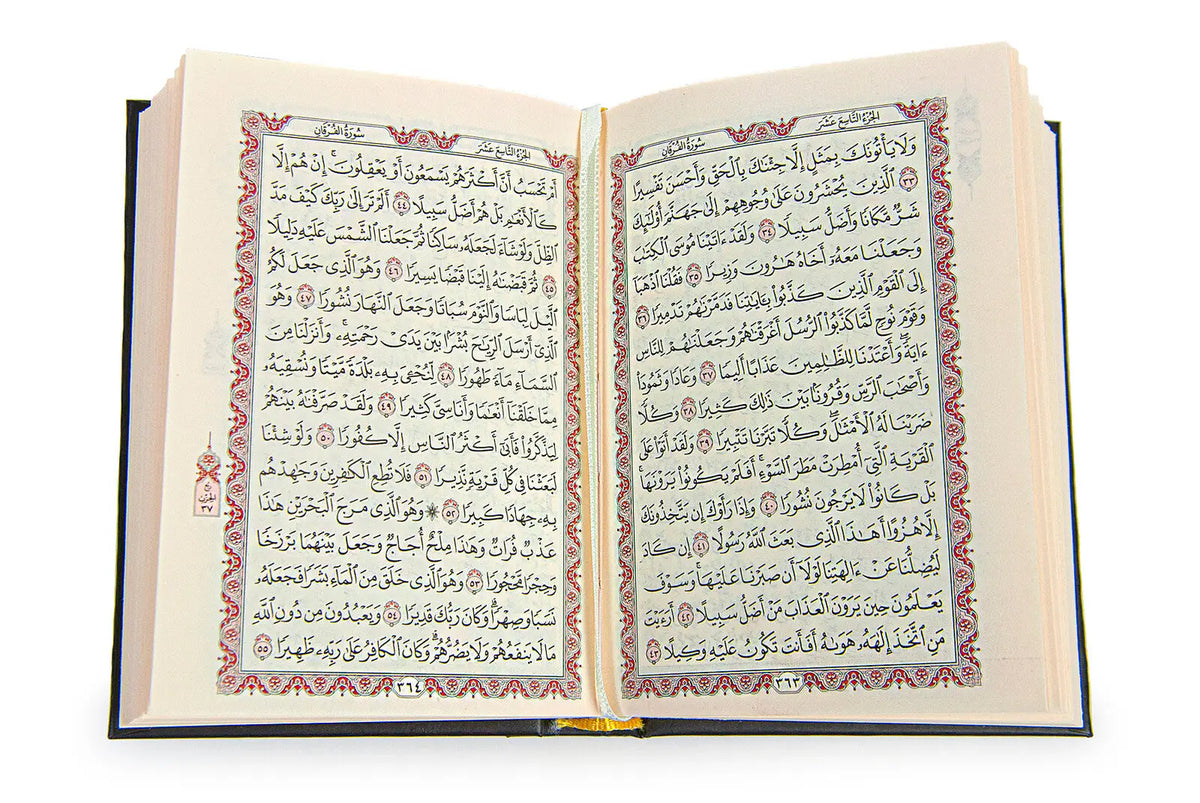 الجزء التاسع عشر
سورة الفرقان
وَلَا يَأْتُونَكَ بِمَثَلٍ إِلَّا جِئْنَٰكَ بِٱلْحَقِّ وَأَحْسَنَ تَفْسِيرًا
٣٣ ٱلَّذِينَ يُحْشَرُونَ عَلَىٰ وُجُوهِهِمْ إِلَىٰ جَهَنَّمَ أُو۟لَٰٓئِكَ
شَرٌّ مَّكَانًا وَأَضَلُّ سَبِيلًا ٣٤ وَلَقَدْ ءَاتَيْنَا مُوسَى ٱلْكِتَٰبَ
وَجَعَلْنَا مَعَهُۥٓ أَخَاهُ هَٰرُونَ وَزِيرًا ٣٥ فَقُلْنَا ٱذْهَبَآ
إِلَى ٱلْقَوْمِ ٱلَّذِينَ كَذَّبُوا۟ بِـَٔايَٰتِنَا فَدَمَّرْنَٰهُمْ تَدْمِيرًا ٣٦
وَقَوْمَ نُوحٍ لَّمَّا كَذَّبُوا۟ ٱلرُّسُلَ أَغْرَقْنَٰهُمْ وَجَعَلْنَٰهُمْ لِلنَّاسِ
ءَايَةً ۖ وَأَعْتَدْنَا لِلظَّٰلِمِينَ عَذَابًا أَلِيمًا ٣٧ وَعَادًا وَثَمُودَا۟
وَأَصْحَٰبَ ٱلرَّسِّ وَقُرُونًۢا بَيْنَ ذَٰلِكَ كَثِيرًا ٣٨ وَكُلًّا
ضَرَبْنَا لَهُ ٱلْأَمْثَٰلَ ۖ وَكُلًّا تَبَّرْنَا تَتْبِيرًا ٣٩ وَلَقَدْ أَتَوْا۟ عَلَى
ٱلْقَرْيَةِ ٱلَّتِىٓ أُمْطِرَتْ مَطَرَ ٱلسَّوْءِ ۚ أَفَلَمْ يَكُونُوا۟ يَرَوْنَهَا ۚ
بَلْ كَانُوا۟ لَا يَرْجُونَ نُشُورًا ٤٠ وَإِذَا رَأَوْكَ إِن يَتَّخِذُونَكَ
إِلَّا هُزُوًا أَهَٰذَا ٱلَّذِى بَعَثَ ٱللَّهُ رَسُولًا ٤١ إِن كَادَ
لَيُضِلُّنَا عَنْ ءَالِهَتِنَا لَوْلَآ أَن صَبَرْنَا عَلَيْهَا ۚ وَسَوْفَ
يَعْلَمُونَ حِينَ يَرَوْنَ ٱلْعَذَابَ مَنْ أَضَلُّ سَبِيلًا ٤٢ أَرَءَيْتَ
مَنِ ٱتَّخَذَ إِلَٰهَهُۥ هَوَىٰهُ أَفَأَنتَ تَكُونُ عَلَيْهِ وَكِيلًا ٤٣
٣٦٣
الجزء التاسع عشر
سورة الفرقان
أَمْ تَحْسَبُ أَنَّ أَكْثَرَهُمْ يَسْمَعُونَ أَوْ يَعْقِلُونَ ۚ إِنْ هُمْ إِلَّا
كَٱلْأَنْعَٰمِ بَلْ هُمْ أَضَلُّ سَبِيلًا ٤٤ أَلَمْ تَرَ إِلَىٰ رَبِّكَ كَيْفَ مَدَّ
ٱلظِّلَّ وَلَوْ شَآءَ لَجَعَلَهُۥ سَاكِنًا ثُمَّ جَعَلْنَا ٱلشَّمْسَ عَلَيْهِ دَلِيلًا
٤٥ ثُمَّ قَبَضْنَٰهُ إِلَيْنَا قَبْضًا يَسِيرًا ٤٦ وَهُوَ ٱلَّذِى جَعَلَ لَكُمُ
ٱلَّيْلَ لِبَاسًا وَٱلنَّوْمَ سُبَاتًا وَجَعَلَ ٱلنَّهَارَ نُشُورًا ٤٧ وَهُوَ
ٱلَّذِىٓ أَرْسَلَ ٱلرِّيَٰحَ بُشْرًۢا بَيْنَ يَدَىْ رَحْمَتِهِۦ ۚ وَأَنزَلْنَا مِنَ
ٱلسَّمَآءِ مَآءً طَهُورًا ٤٨ لِّنُحْـِۧىَ بِهِۦ بَلْدَةً مَّيْتًا وَنُسْقِيَهُۥ
مِمَّا خَلَقْنَآ أَنْعَٰمًا وَأَنَاسِىَّ كَثِيرًا ٤٩ وَلَقَدْ صَرَّفْنَٰهُ بَيْنَهُمْ
لِيَذَّكَّرُوا۟ فَأَبَىٰٓ أَكْثَرُ ٱلنَّاسِ إِلَّا كُفُورًا ٥٠ وَلَوْ شِئْنَا
لَبَعَثْنَا فِى كُلِّ قَرْيَةٍ نَّذِيرًا ٥١ فَلَا تُطِعِ ٱلْكَٰفِرِينَ وَجَٰهِدْهُم
بِهِۦ جِهَادًا كَبِيرًا ٥٢ ۞ وَهُوَ ٱلَّذِى مَرَجَ ٱلْبَحْرَيْنِ هَٰذَا
عَذْبٌ فُرَاتٌ وَهَٰذَا مِلْحٌ أُجَاجٌ وَجَعَلَ بَيْنَهُمَا بَرْزَخًا
وَحِجْرًا مَّحْجُورًا ٥٣ وَهُوَ ٱلَّذِى خَلَقَ مِنَ ٱلْمَآءِ بَشَرًا فَجَعَلَهُۥ
نَسَبًا وَصِهْرًا ۗ وَكَانَ رَبُّكَ قَدِيرًا ٥٤ وَيَعْبُدُونَ مِن دُونِ ٱللَّهِ
مَا لَا يَنفَعُهُمْ وَلَا يَضُرُّهُمْ ۗ وَكَانَ ٱلْكَافِرُ عَلَىٰ رَبِّهِۦ ظَهِيرًا ٥٥
٣٦٤
الحزب
٣٧